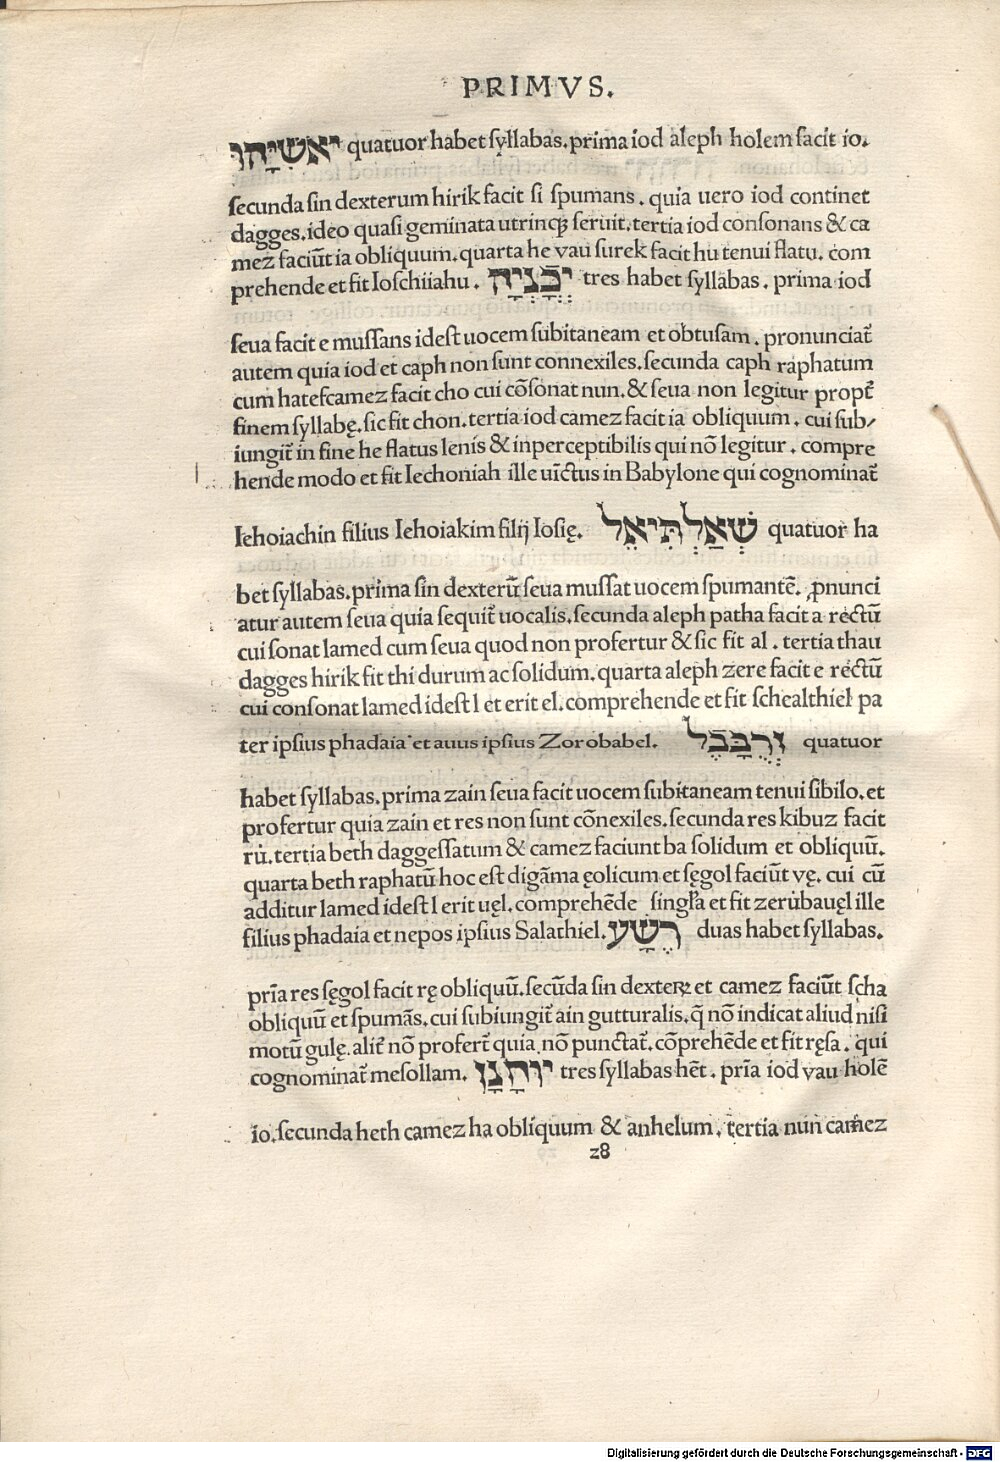 PRIMVS.
יאשִׁיָּהוּ quatuor habet syllabas. prima iod aleph holem facit io.
secunda sin dexterum hirik facit si spumans. quia uero iod continet
dagges. ideo quasi geminata utrinqꝫ seruit. tertia iod consonans & ca
mez faciūt ia obliquum. quarta he vau surek facit hu tenui flatu. com
prehende et fit Ioschiiahu. יְכָֿנְיָה tres habet syllabas. prima iod
seua facit e mussans idest uocem subitaneam et obtusam. pronunciat᷑
autem quia iod et caph non sunt connexiles. secunda caph raphatum
cum hatefcamez facit cho cui cōsonat nun. & seua non legitur propt᷑
finem syllabę. sic fit chon. tertia iod camez facit ia obliquum. cui sub⸗
iungit᷑ in fine he flatus lenis & inperceptibilis qui nō legitur. compre
hende modo et fit Iechoniah ille uīctus in Babylone qui cognominat᷑
Iehoiachin filius Iehoiakim filij Iosię. שְׁאַלְתִּיאֵל quatuor ha
bet syllabas. prima sin dexterū seua mussat uocem spumantē. ꝓnunci
atur autem seua quia sequit᷑ uocalis. secunda aleph patha facit a rectū
cui sonat lamed cum seua quod non profertur & sic fit al. tertia thau
dagges hirik fit thi durum ac solidum. quarta aleph zere facit e rectū
cui consonat lamed idest l et erit el. comprehende et fit schealthiel pa
ter ipsius phadaia et auus ipsius Zorobabel. זְרֻבָּבֶל quatuor
habet syllabas. prima zain seua facit uocem subitaneam tenui sibilo. et
profertur quia zain et res non sunt cōnexiles. secunda res kibuz facit
ru̇. tertia beth daggessatum & camez faciunt ba solidum et obliquū.
quarta beth raphatū hoc est digāma ęolicum et sęgol faciūt vę. cui cū
additur lamed idest l erit uęl. comprehēde singl̃a et fit zeru̇bauęl ille
filius phadaia et nepos ipsius Salathiel. רֶשָׁע duas habet syllabas.
pria̅ res sęgol facit rę obliquū. secūda sin dexteꝝ et camez faciūt scha
obliquū et spumās. cui subiungit᷑ ain gutturalis. q̄ nō indicat aliud nisi
motū gulę. alit᷑ nō profert᷑ quia nō punctat᷑. cōprehēde et fit ręsa. qui
cognominat᷑ mesollam. יוֹחָנָן tres syllabas hēt. pria̅ iod vau holē
io. secunda heth camez ha obliquum & anhelum. tertia nun camez
z8
Digitalisierung gefördert durch die Deutsche Forschungsgemeinschaft - DFG